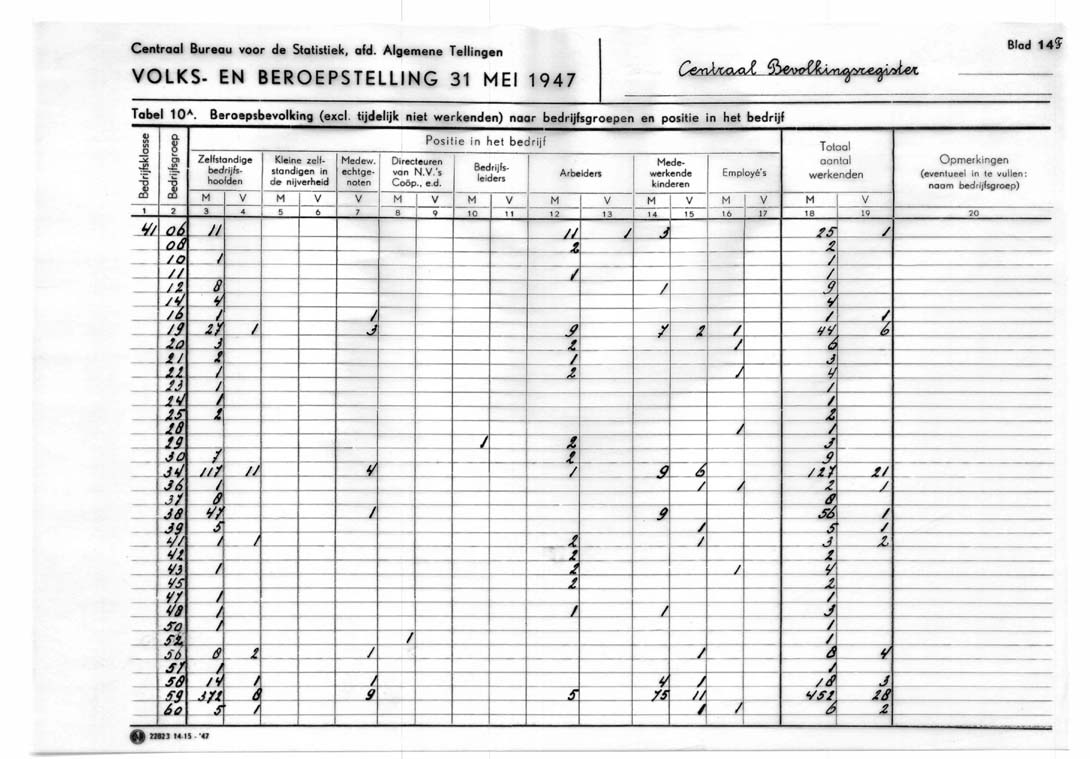 Centraal Bureau voor de Statistiek, afd. Algemene Tellingen
VOLKS- EN BEROEPSTELLING 31 MEI 1947
Centraal Bevolkingsregister
Blad 14F
Tabel 10A. Beroepsbevolking (excl. tijdelijk niet werkenden) naar bedrijfsgroepen en positie in het bedrijf
Bedrijfsklasse
Bedrijfsgroep
Positie in het bedrijf
Zelfstandige bedrijfs-hoofden
Kleine zelf-standigen in de nijverheid
Medew. echtge-noten
Directeuren van N.V.'s Coöp., e.d.
Bedrijfs-leiders
Arbeiders
Mede-werkende kinderen
Employé's
Totaal aantal werkenden
Opmerkingen (eventueel in te vullen: naam bedrijfsgroep)
M V M V V M V M V M V M V M V M V
1 2 3 4 5 6 7 8 9 10 11 12 13 14 15 16 17 18 19 20
41 06 11 11 1 3 25 1
08 2 2
10 1 1
11 1 1
12 8 1 9
14 4 4
16 1 1 1 1
19 27 1 3 9 7 2 1 44 6
20 3 2 1 6
21 2 1 3
22 1 2 1 4
23 1 1
24 1 1
25 2 2
28 1 1
29 1 2 3
30 7 2 9
34 117 11 4 1 9 6 127 21
36 1 1 1 2 1
37 8 8
38 47 1 9 56 1
39 5 1 5 1
41 1 1 2 1 3 2
42 2 2
43 1 2 1 4
45 2 2
47 1 1
48 1 1 1 3
50 1 1
52 1 1
56 8 2 1 1 8 4
57 1 1
58 14 1 1 4 1 18 3
59 372 8 9 5 75 11 452 28
60 5 1 1 1 6 2
22823 14-15 - '47